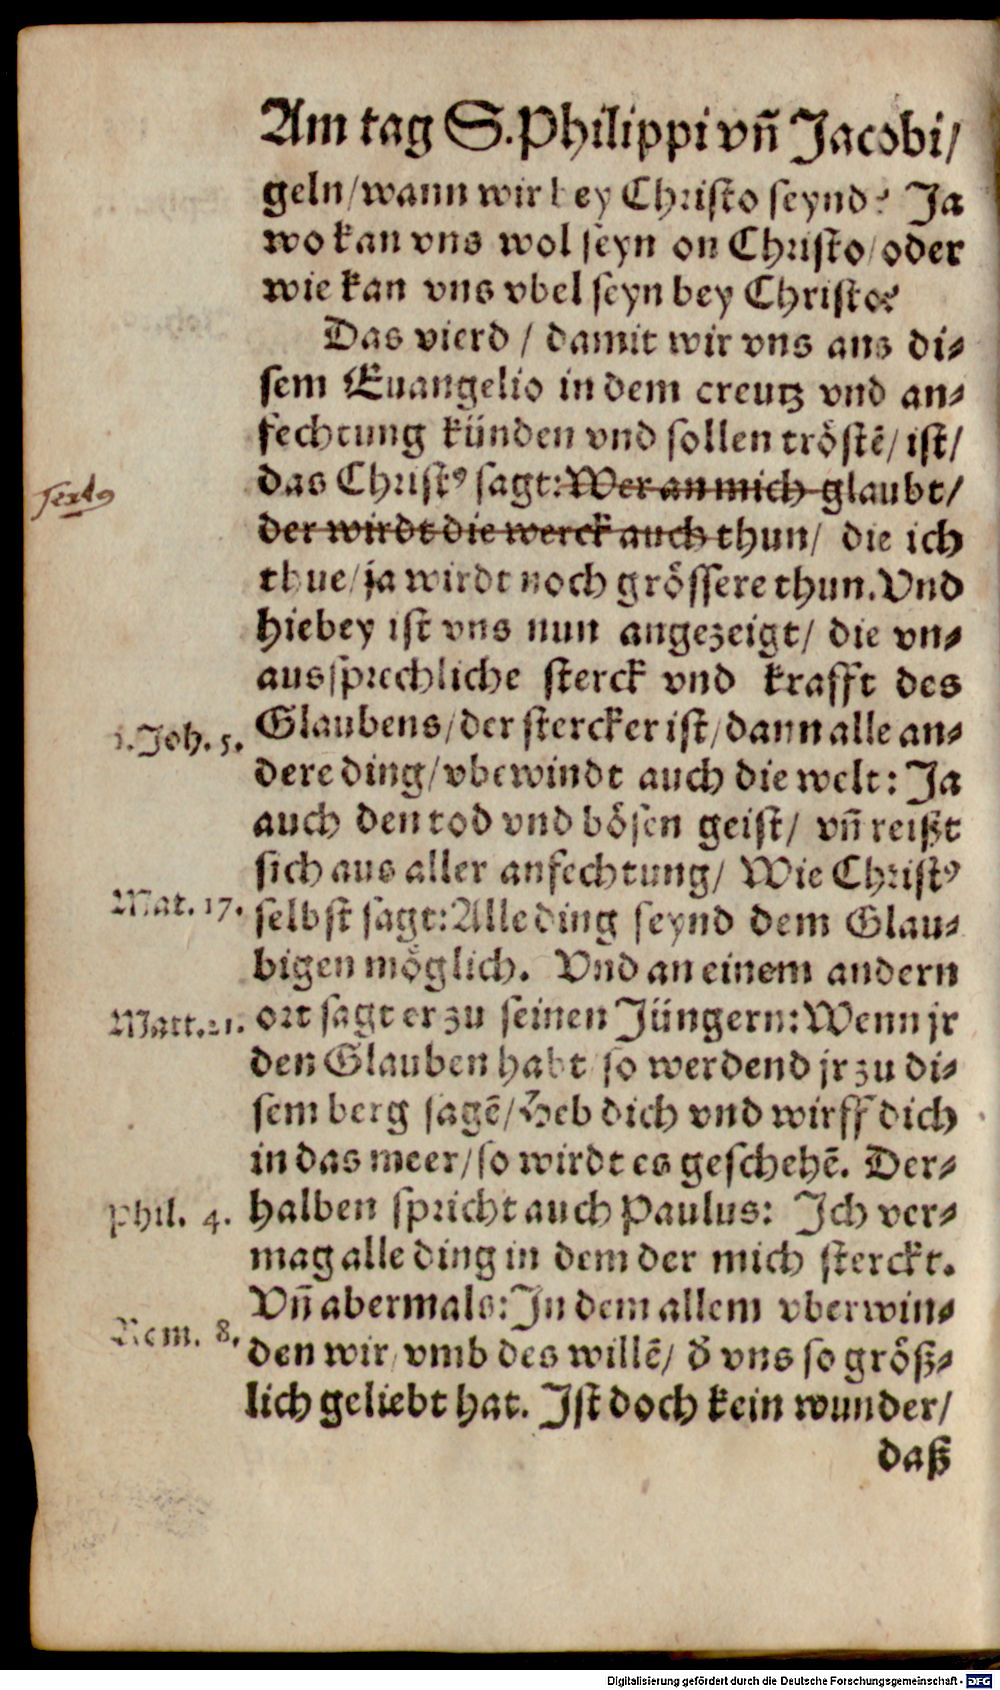 Am tag S. Philippi vñ Jacobi/
geln/ wann wir bey Christo seynd? Ja
wo kan vns wol seyn on Christo/ oder
wie kan vns vbel seyn bey Christo?
Das vierd / damit wir vns aus di⸗
sem Euangelio in dem creutz vnd an⸗
fechtung künden vnd sollen tröstē/ ist/
das Christꝰ sagt: Wer an mich glaubt/
der wirdt die werck auch thun/ die ich
thue/ ja wirdt noch grössere thun. Vnd
hiebey ist vns nun angezeigt/ die vn⸗
aussprechliche sterck vnd krafft des
1. Joh. 5.
Glaubens/ der stercker ist/ dann alle an⸗
dere ding/ vbewindt auch die welt: Ja
auch den tod vnd bösen geist/ vñ reißt
sich aus aller anfechtung/ Wie Christꝰ
Mat. 17.
selbst sagt: Alle ding seynd dem Glau⸗
bigen möglich. Vnd an einem andern
Matt. 21.
ort sagt er zu seinen Jüngern: Wenn jr
den Glauben habt so werdend jr zu di⸗
sem berg sagē/ Heb dich vnd wirff dich
in das meer/ so wirdt es geschehē. Der⸗
Phil. 4.
halben spricht auch Paulus: Ich ver⸗
mag alle ding in dem der mich sterckt.
Vñ abermals: In dem allem vberwin⸗
Rom. 8.
den wir/ vmb des willē/ ð vns so größ⸗
lich geliebt hat. Ist doch kein wunder/
daß
Digitalisierung gefördert durch die Deutsche Forschungsgemeinschaft - DFG